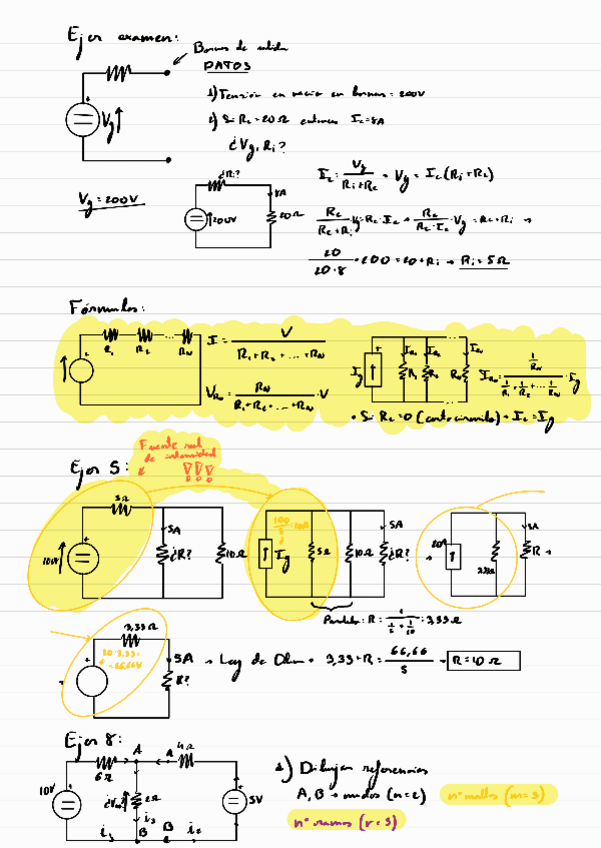 Ejer examen:
Bornas de salida
DATOS
1) Tensión en vacío en bornas = 200V
2) Si Rc = 20 Ω entonces Ic = 8A
¿Vg, Ri?
Vg
Vg = 200V
¿Ri?
8A
200V
20Ω
Ic = Vg / (Ri + Rc) → Vg = Ic (Ri + Rc)
Rc / (Rc + Ri) · Vg = Rc · Ic → Rc / (Rc · Ic) · Vg = Rc + Ri →
20 / (20 · 8) · 200 = 20 + Ri → Ri = 5Ω
Fórmulas:
R1 R2 ... RN
I = V / (R1 + R2 + ... + RN)
VRN = RN / (R1 + R2 + ... + RN) · V
Ig
IR1 IR2 IRN
R1 R2 RN
IRN = (1/RN) / (1/R1 + 1/R2 + ... 1/RN) · Ig
• Si Rc = 0 (cortocircuito) → Ic = Ig
Fuente real
de intensidad
!!!
Ejer 5:
5Ω
100V
5A
¿R?
10Ω
Ig
5Ω
10Ω
5A
¿R?
20A
3,33Ω
5A
R →
Paralelo: R = 1 / (1/5 + 1/10) = 3,33Ω
3,33Ω
20 · 3,33 =
= 66,66V
5A
R?
→ Ley de Ohm → 3,33 + R = 66,66 / 5 → R = 10Ω
Ejer 8:
10V
6Ω
A
4Ω
2Ω
5V
i1
i3
B
i2
1) Dibujar referencias
A, B → nudos (n = 2)
nº mallas (m = 3)
nº ramas (r = 3)